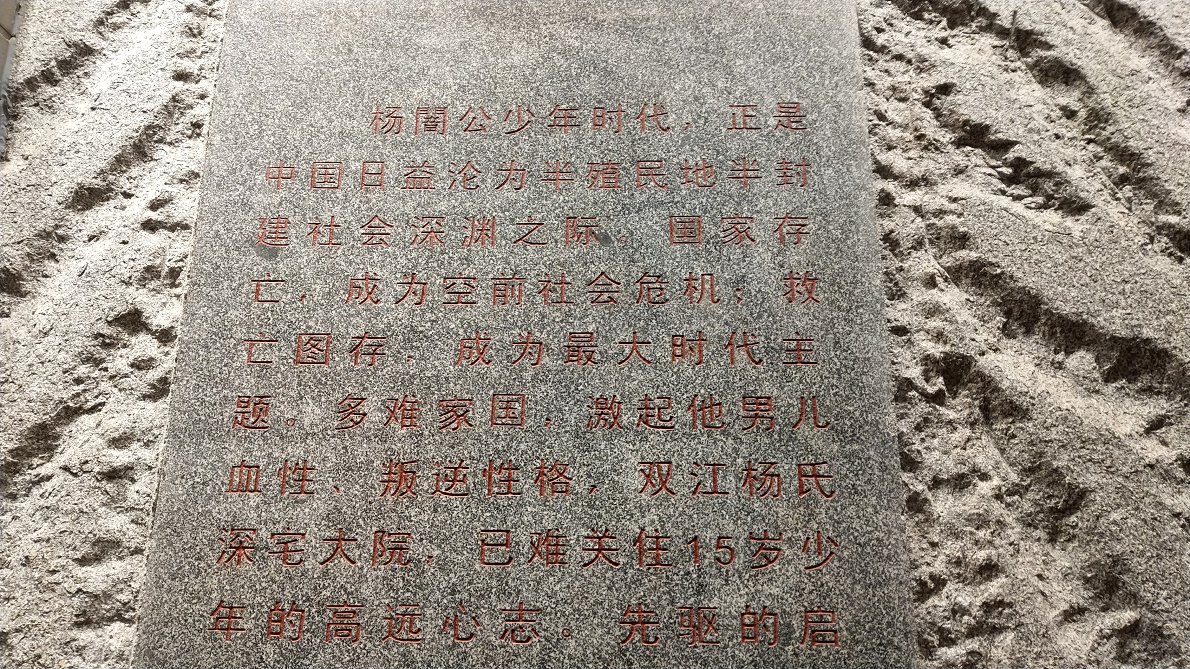 杨闇公少年时代，正是
中国日益沦为半殖民地半封
建社会深渊之际。国家存
亡，成为空前社会危机；救
亡图存，成为最大时代主
题。多难家国，激起他男儿
血性、叛逆性格，双江杨氏
深宅大院，已难关住15岁少
年的高远心志。先驱的启